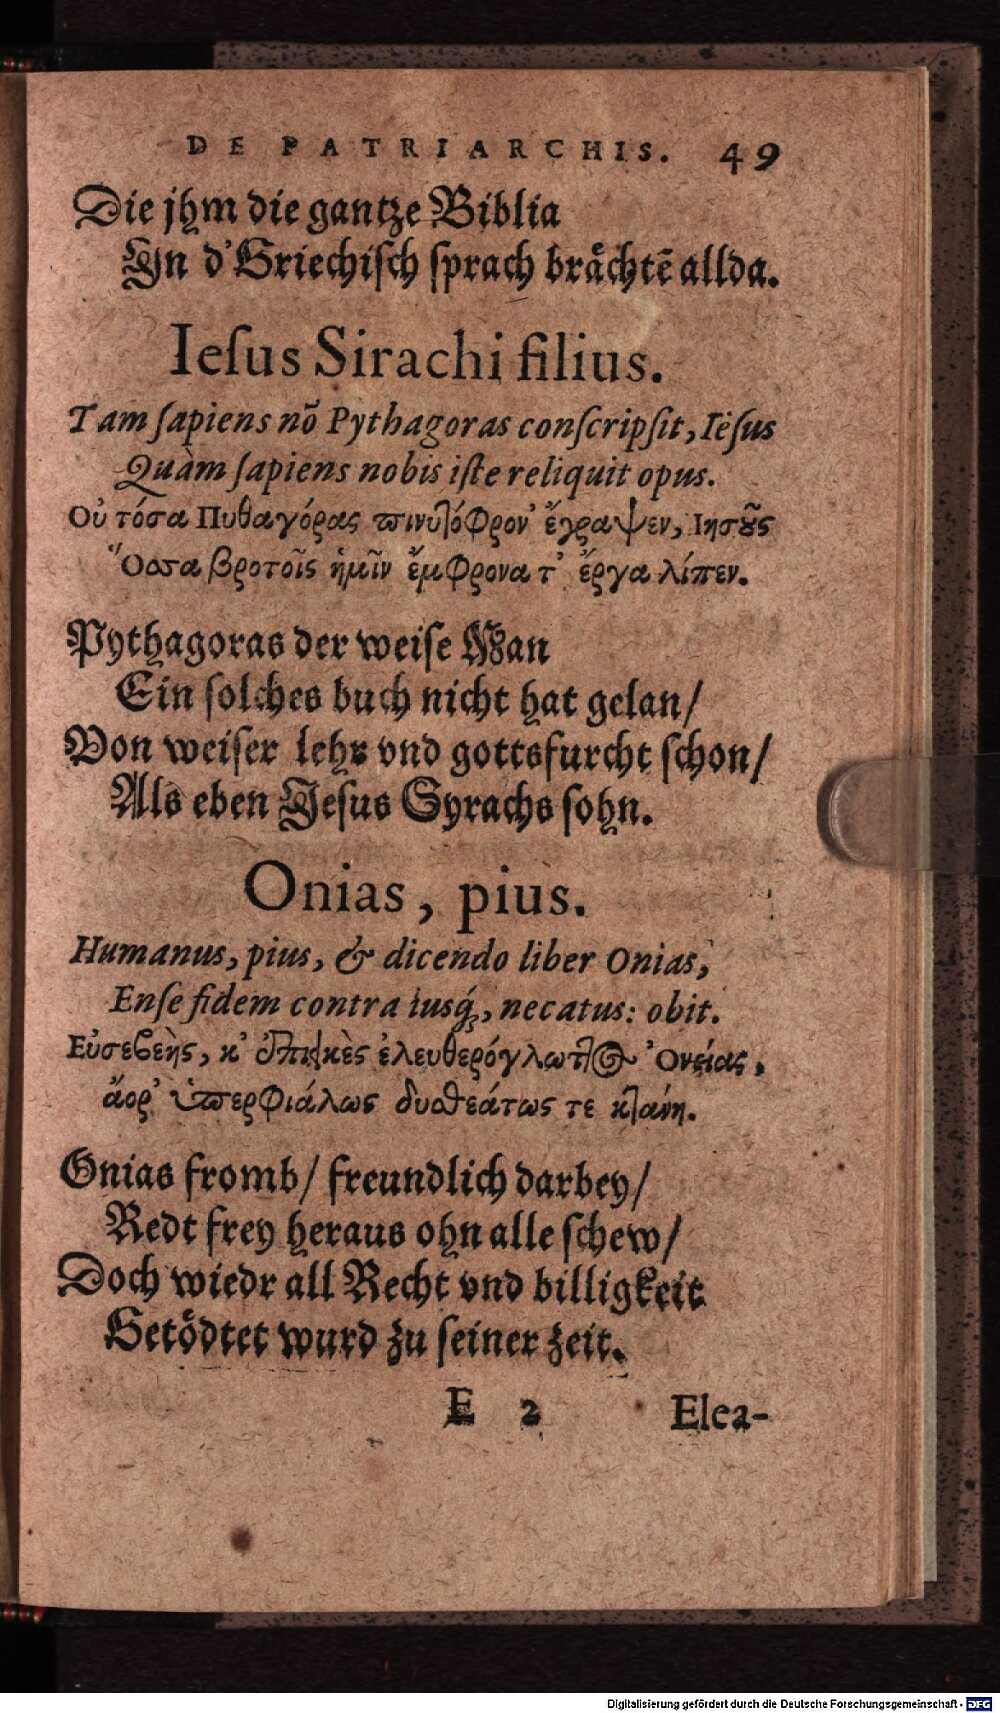 DE PATRIARCHIS. 49
Die jhm die gantze Biblia
In d'Griechisch sprach braͤchtē allda.
Iesus Sirachi filius.
Tam sapiens nō Pythagoras conscripsit, Iësus
Quàm sapiens nobis iste reliquit opus.
Οὐ τόσα Πυθαγόρας πινυτόφρον' ἔγραψεν, Ιησοῦς
Ὅσσα βροτοῖς ἡμῖν ἔμφρονα τ' ἔργα λίπεν.
Pythagoras der weise Man
Ein solches buch nicht hat gelan/
Von weiser lehr vnd gottsfurcht schon/
Als eben Jesus Syrachs sohn.
Onias, pius.
Humanus, pius, & dicendo liber Onias,
Ense fidem contra iusq́;, necatus: obit.
Εὐσεβεὴς, κ' ἐπιεικὲς ἐλευθερόγλωττος Ὀνείας,
ἄορ' ὑπερφιάλως δυσθεάτως τε κτάνη.
Onias fromb/ freundlich darbey/
Redt frey heraus ohn alle schew/
Doch wiedr all Recht vnd billigkeit
Getoͤdtet wurd zu seiner zeit.
E 2 Elea-
Digitalisierung gefördert durch die Deutsche Forschungsgemeinschaft - DFG